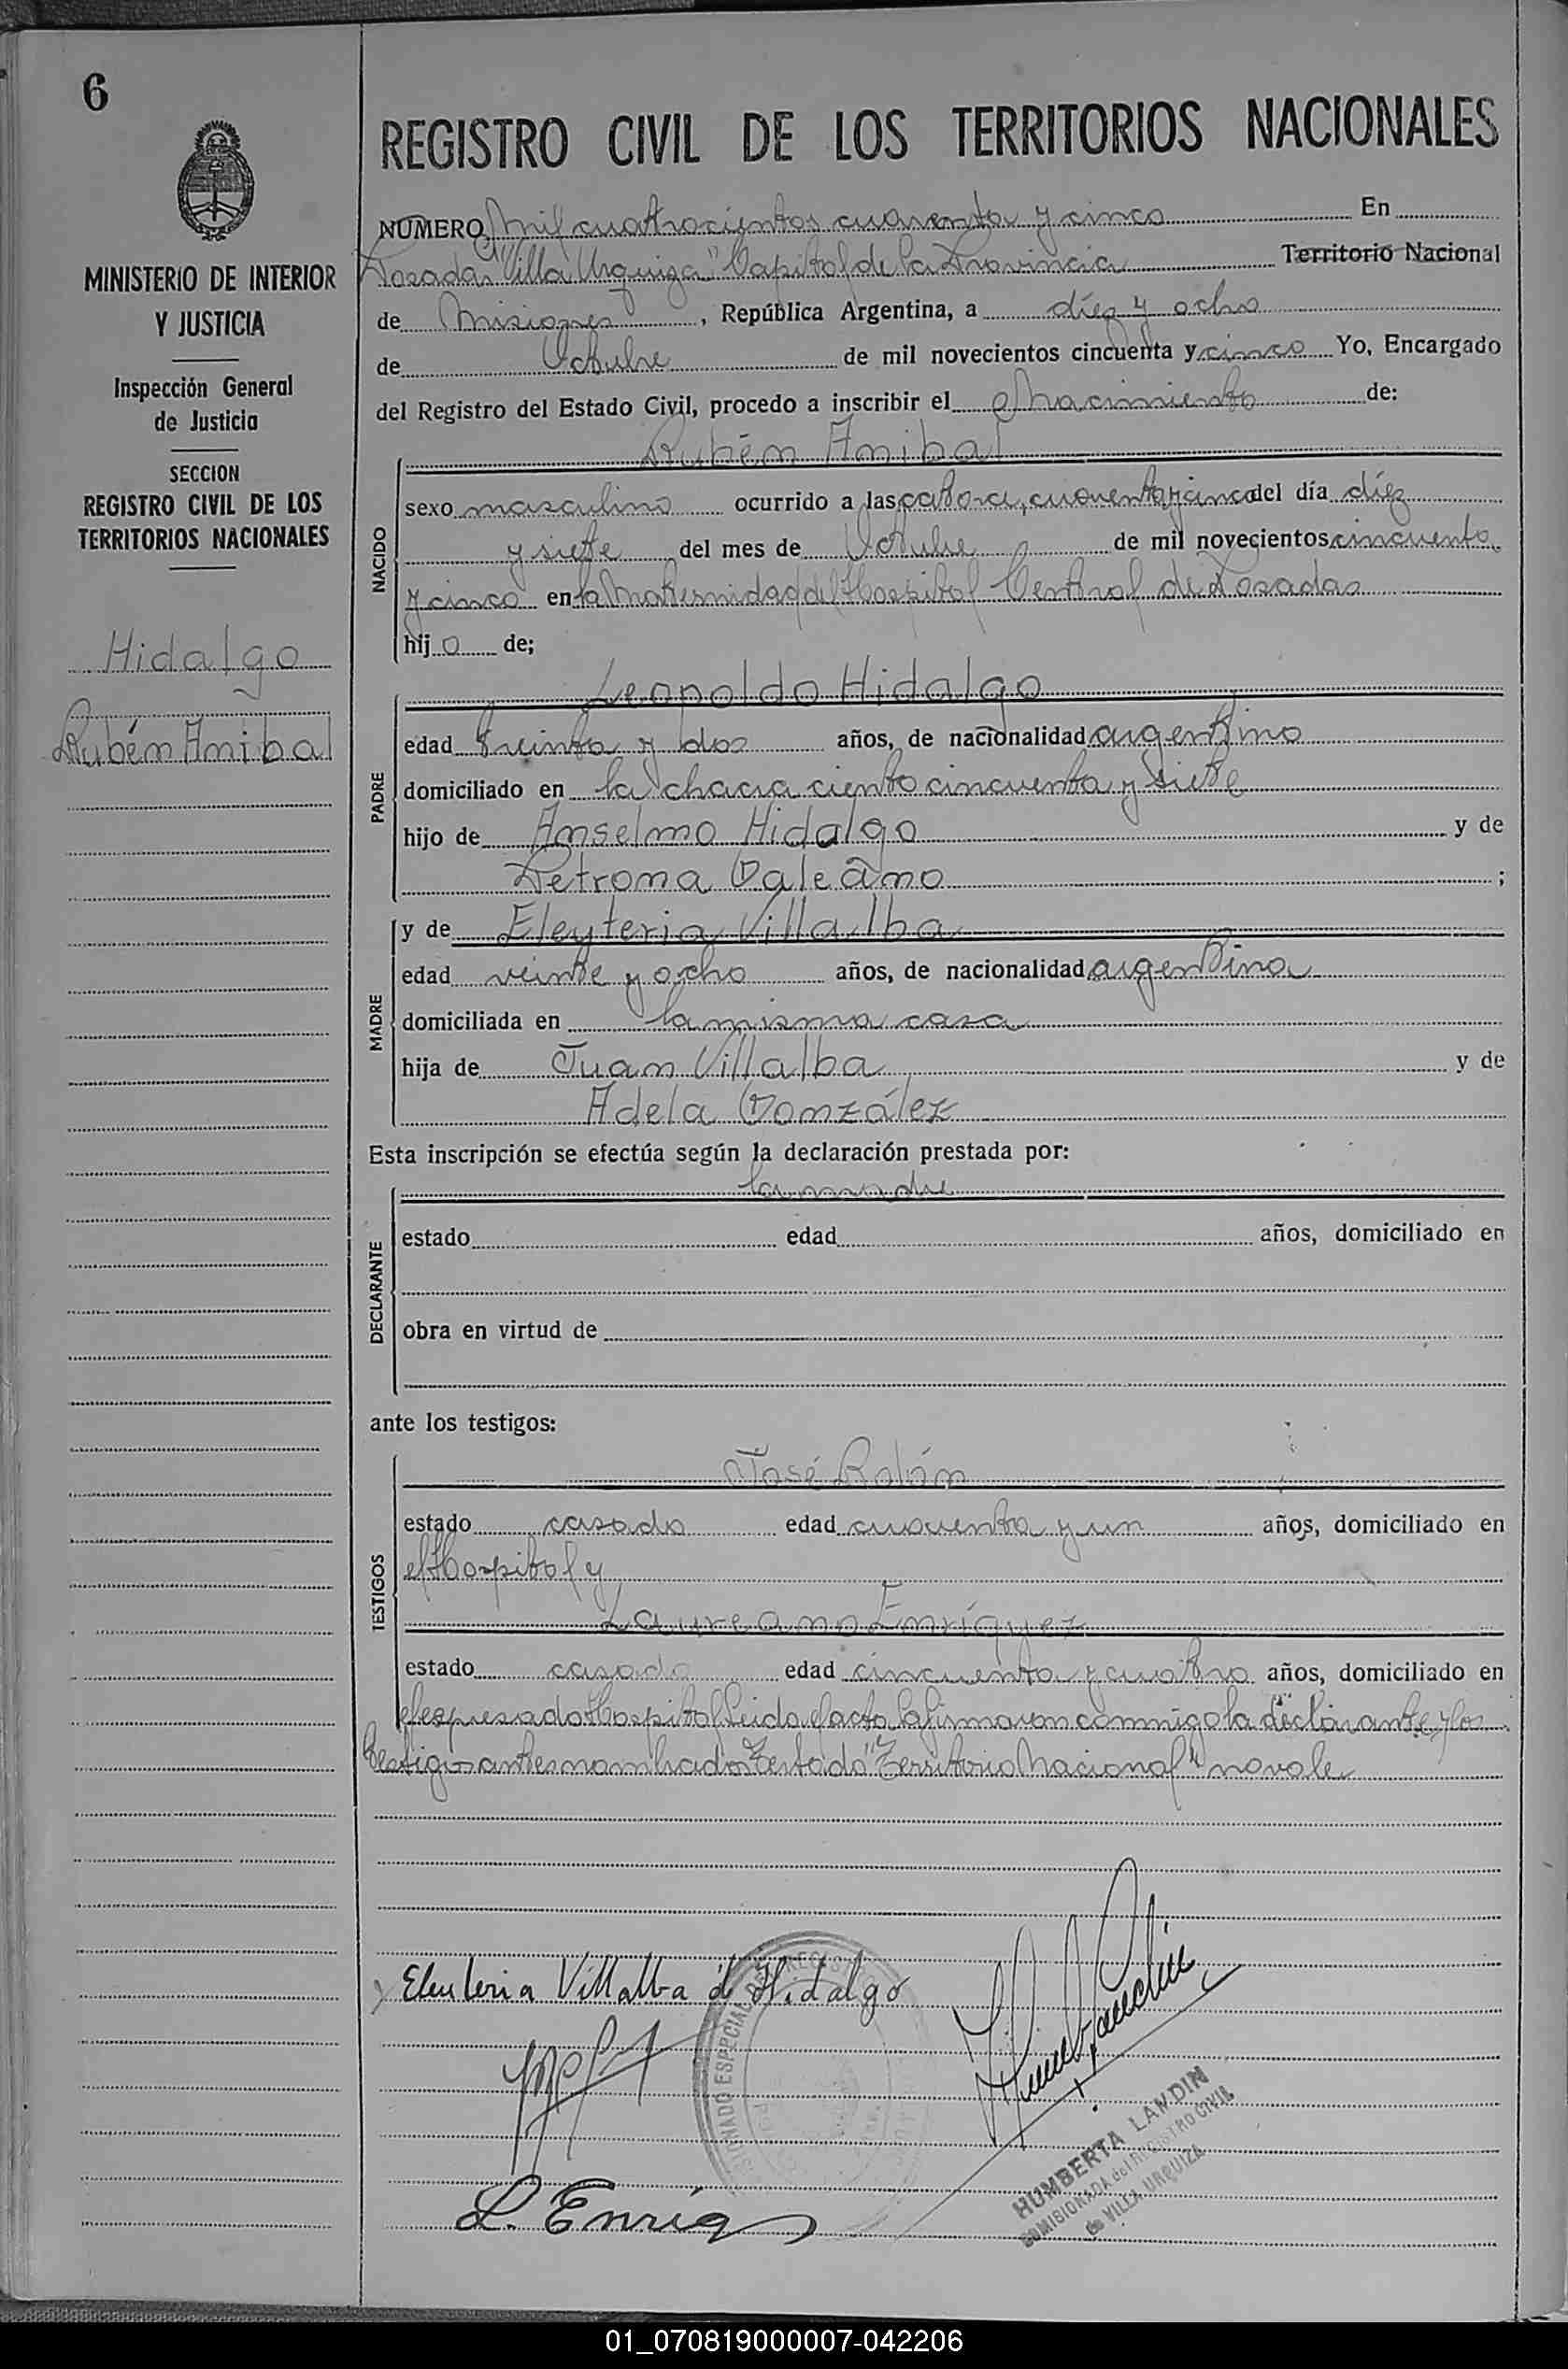 6
MINISTERIO DE INTERIOR
Y JUSTICIA
Inspección General
de Justicia
SECCION
REGISTRO CIVIL DE LOS
TERRITORIOS NACIONALES
Hidalgo
Rubén Anibal
REGISTRO CIVIL DE LOS TERRITORIOS NACIONALES
NUMERO mil cuatrocientos cuarenta y cinco En
Posadas "Villa Urquiza" Capital de la Provincia Territorio Nacional
de Misiones, República Argentina, a diez y ocho
de Octubre de mil novecientos cincuenta y cinco Yo, Encargado
del Registro del Estado Civil, procedo a inscribir el Nacimiento de:
Rubén Anibal
NACIDO
sexo masculino ocurrido a las catorce, cuarenta y cinco del día diez
y siete del mes de Octubre de mil novecientos cincuenta
y cinco en la Maternidad del Hospital Central de Posadas
hijo de;
Leopoldo Hidalgo
PADRE
edad treinta y dos años, de nacionalidad argentino
domiciliado en la chacra ciento cincuenta y siete
hijo de Anselmo Hidalgo y de
Petrona Galeano;
MADRE
y de Eleyteria Villalba
edad veinte y ocho años, de nacionalidad argentina
domiciliada en la misma casa
hija de Juan Villalba y de
Adela González
Esta inscripción se efectúa según la declaración prestada por:
la madre
DECLARANTE
estado edad años, domiciliado en
obra en virtud de
ante los testigos:
José Rolón
TESTIGOS
estado casado edad cuarenta y un años, domiciliado en
el Hospital y
Laureano Enríquez
estado casado edad cincuenta y cuatro años, domiciliado en
el expresado Hospital Leida el acta la firmaron conmigo la declarante y los
testigos antes nombrados Testado "Territorio Nacional" no vale
Eleuteria Villalba d Hidalgo
L. Enriq
HUMBERTA LANDIN
COMISIONADA del REGISTRO CIVIL
de VILLA URQUIZA
01_070819000007-042206